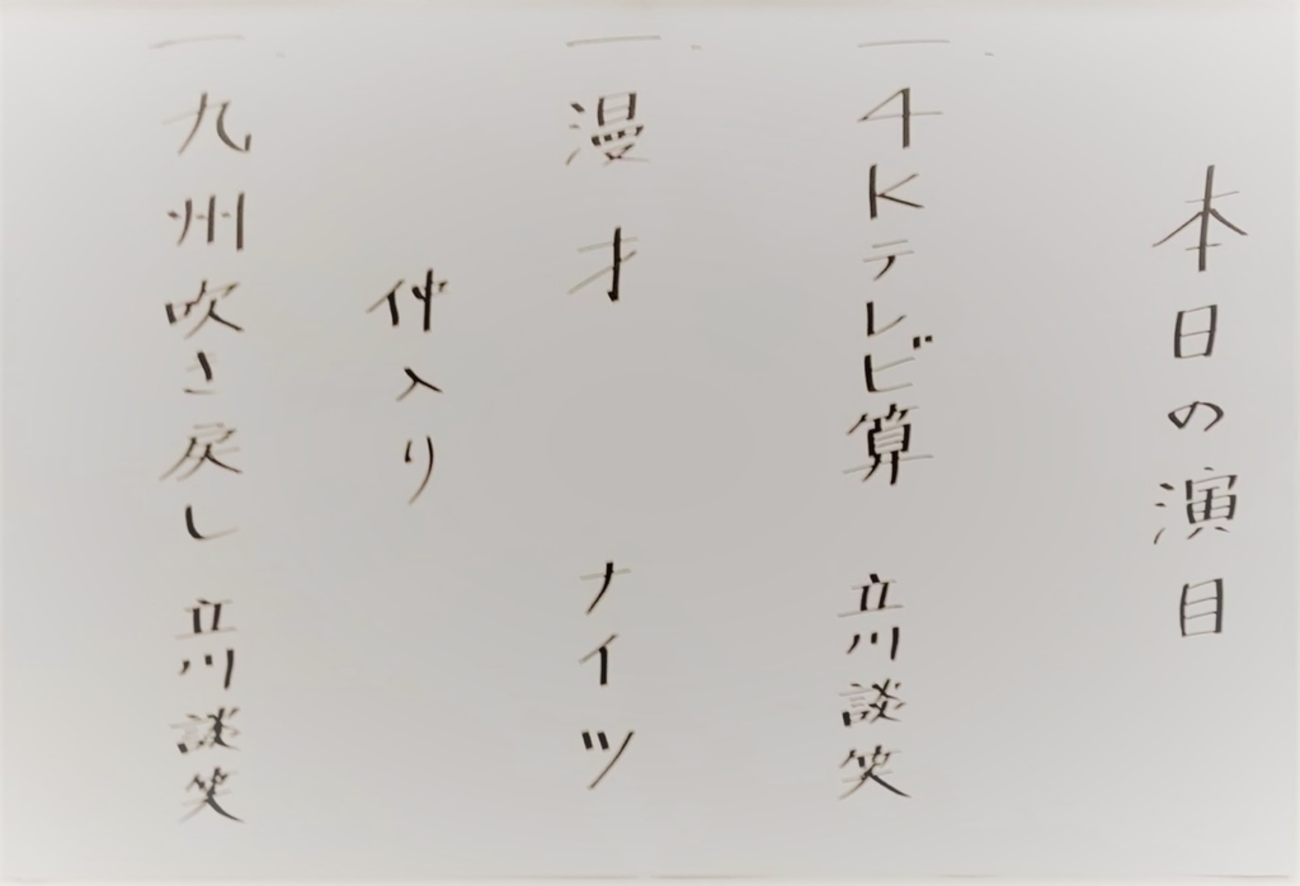 本日の演目
一、4Kテレビ算 立川談笑
一、漫才 ナイツ
仲入り
一、九州吹き戻し 立川談笑